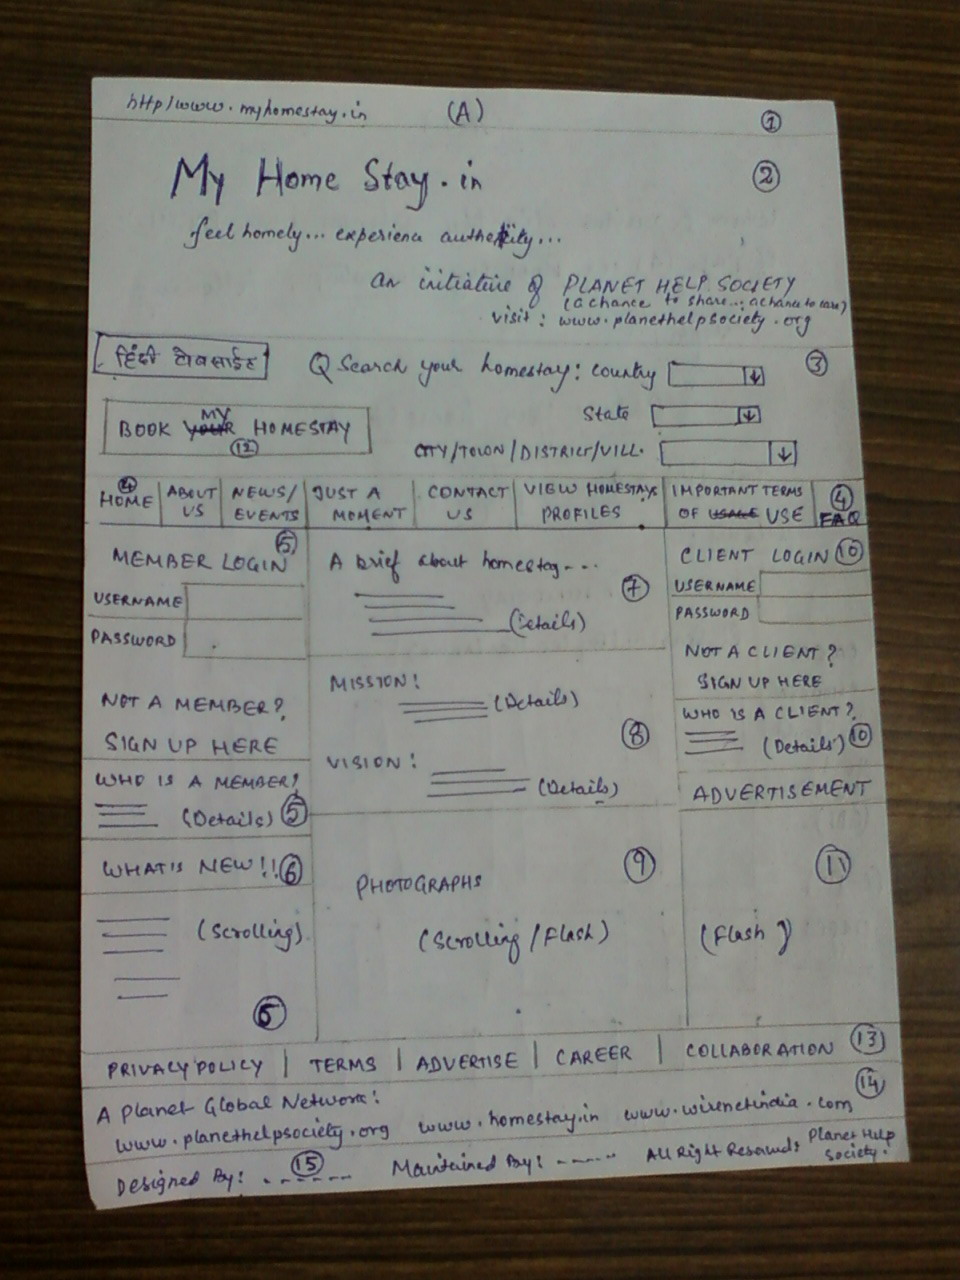 http/www.myhomestay.in (A) 1
My Home Stay.in 2
feel homely... experience authe city...
an initiative of PLANET HELP SOCIETY
(a chance to share... a chance to care)
visit: www.planethelpsociety.org
हिंदी वेबसाईट Q Search your homestay: country 3
State
BOOK MY HOMESTAY
12
CITY/TOWN/DISTRICT/VILL.
4 HOME | ABOUT US | NEWS/ EVENTS | JUST A MOMENT | CONTACT US | VIEW HOMESTAYS PROFILES | IMPORTANT TERMS OF USE | 4 FAQ
MEMBER LOGIN 5
USERNAME
PASSWORD
NOT A MEMBER?
SIGN UP HERE
WHO IS A MEMBER?
(Details) 5
WHAT'S NEW!! 6
(Scrolling)
A brief about homestay---
7
(Details)
MISSION:
(Details)
8
VISION:
(Details)
PHOTOGRAPHS 9
(Scrolling/Flash)
CLIENT LOGIN 10
USERNAME
PASSWORD
NOT A CLIENT?
SIGN UP HERE
WHO IS A CLIENT?
(Details) 10
ADVERTISEMENT
11
(Flash)
PRIVACY POLICY | TERMS | ADVERTISE | CAREER | COLLABORATION 13
A Planet Global Network: 14
www.planethelpsociety.org www.homestay.in www.wirenetindia.com
Designed By: ------ 15 Maintained By: ----- All Right Reserved: Planet Help Society.